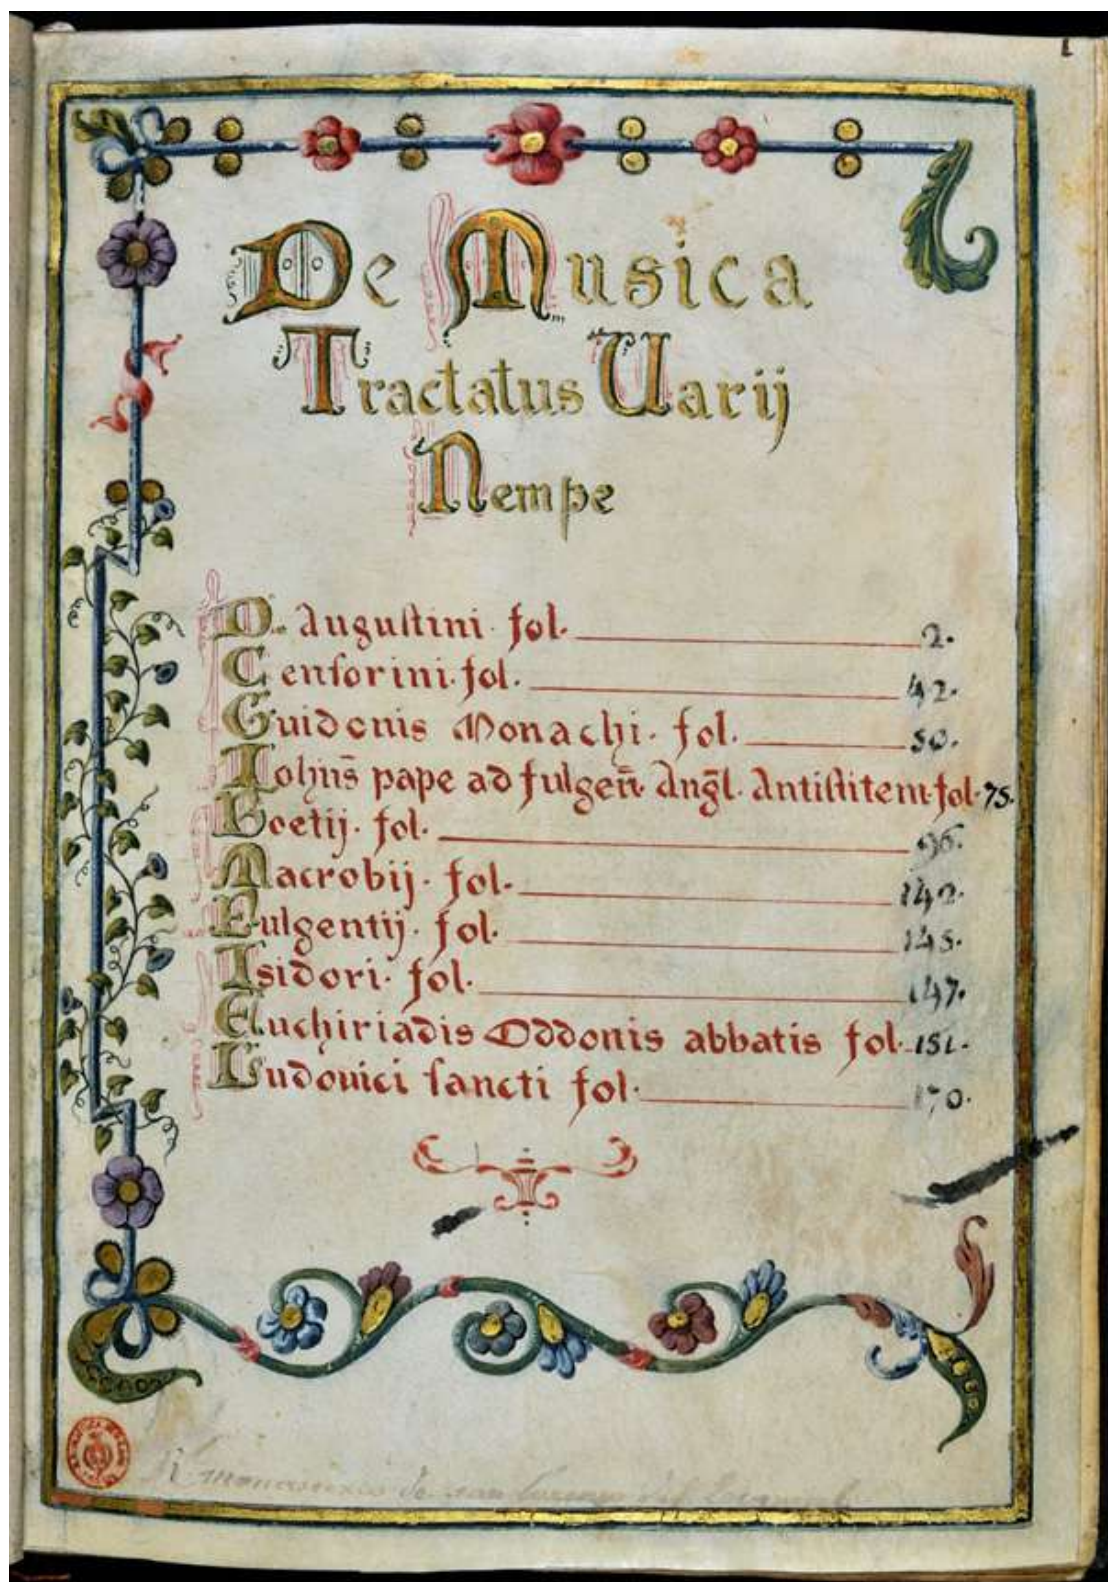 1
De Musica
Tractatus Uarij
Nempe
D. Augustini. fol. 2.
Censorini. fol. 42.
Guidonis Monachi. fol. 50.
Iohñs pape ad fulgeñ. Angl̃. Antistitem. fol. 75.
Boetij. fol. 96.
Macrobij. fol. 142.
Fulgentij. fol. 145.
Isidori. fol. 147.
Euchiriadis Oddonis abbatis fol. 151.
Ludouici sancti fol. 170.
monasterio de san